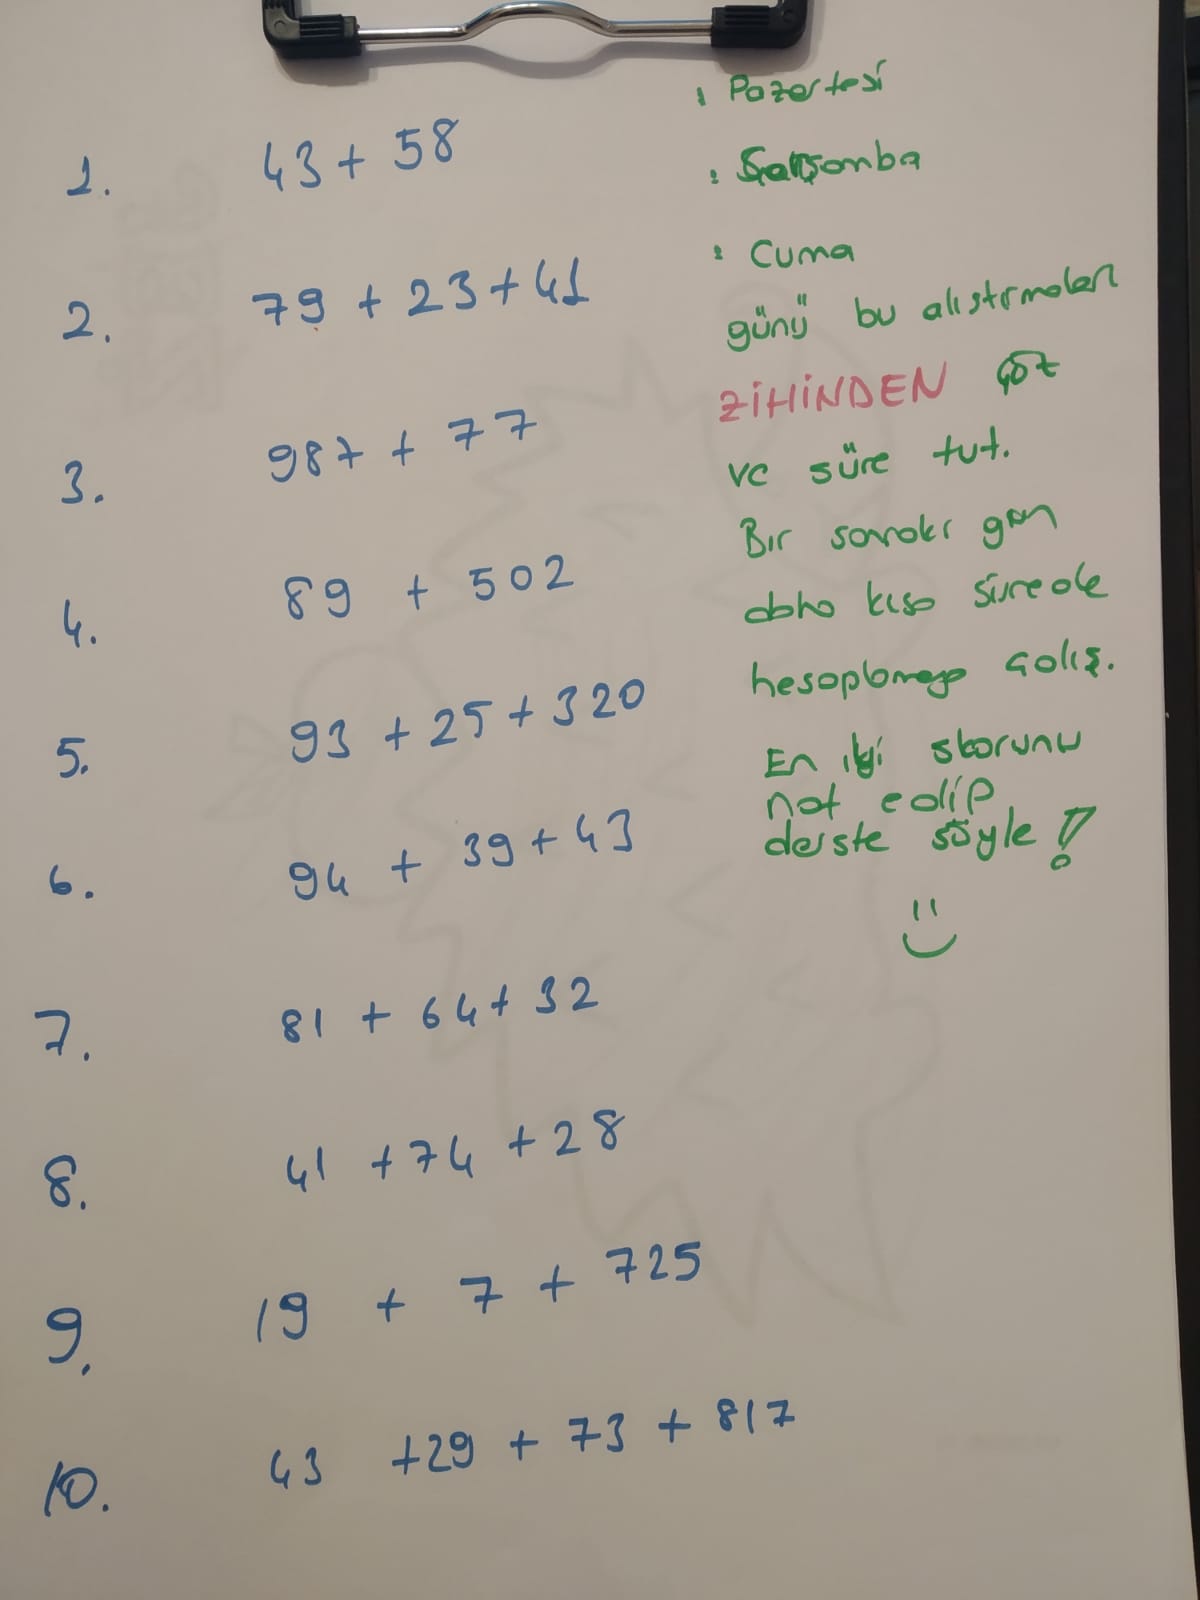 1. 43 + 58
2. 79 + 23 + 41
3. 987 + 77
4. 89 + 502
5. 93 + 25 + 320
6. 94 + 39 + 43
7. 81 + 64 + 32
8. 41 + 74 + 28
9. 19 + 7 + 725
10. 43 + 29 + 73 + 817
: Pazartesi
: Çarşamba
: Cuma
günü bu alıştırmaları
ZİHİNDEN çöz
ve süre tut.
Bir sonraki gün
daha kısa sürede
hesaplamaya çalış.
En iyi skorunu
not edip
derste söyle !